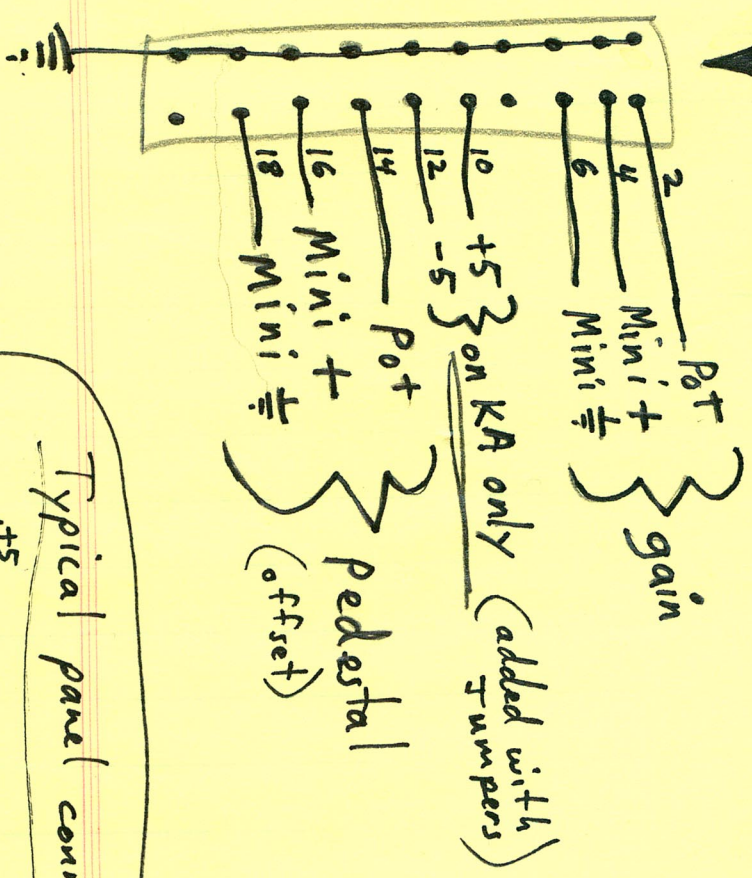 2 Pot
4 Mini +
6 Mini
gain
10 +5
12 -5
on KA only (added with
Jumpers)
14 Pot
16 Mini +
18 Mini
pedestal
(offset)
Typical panel
+5